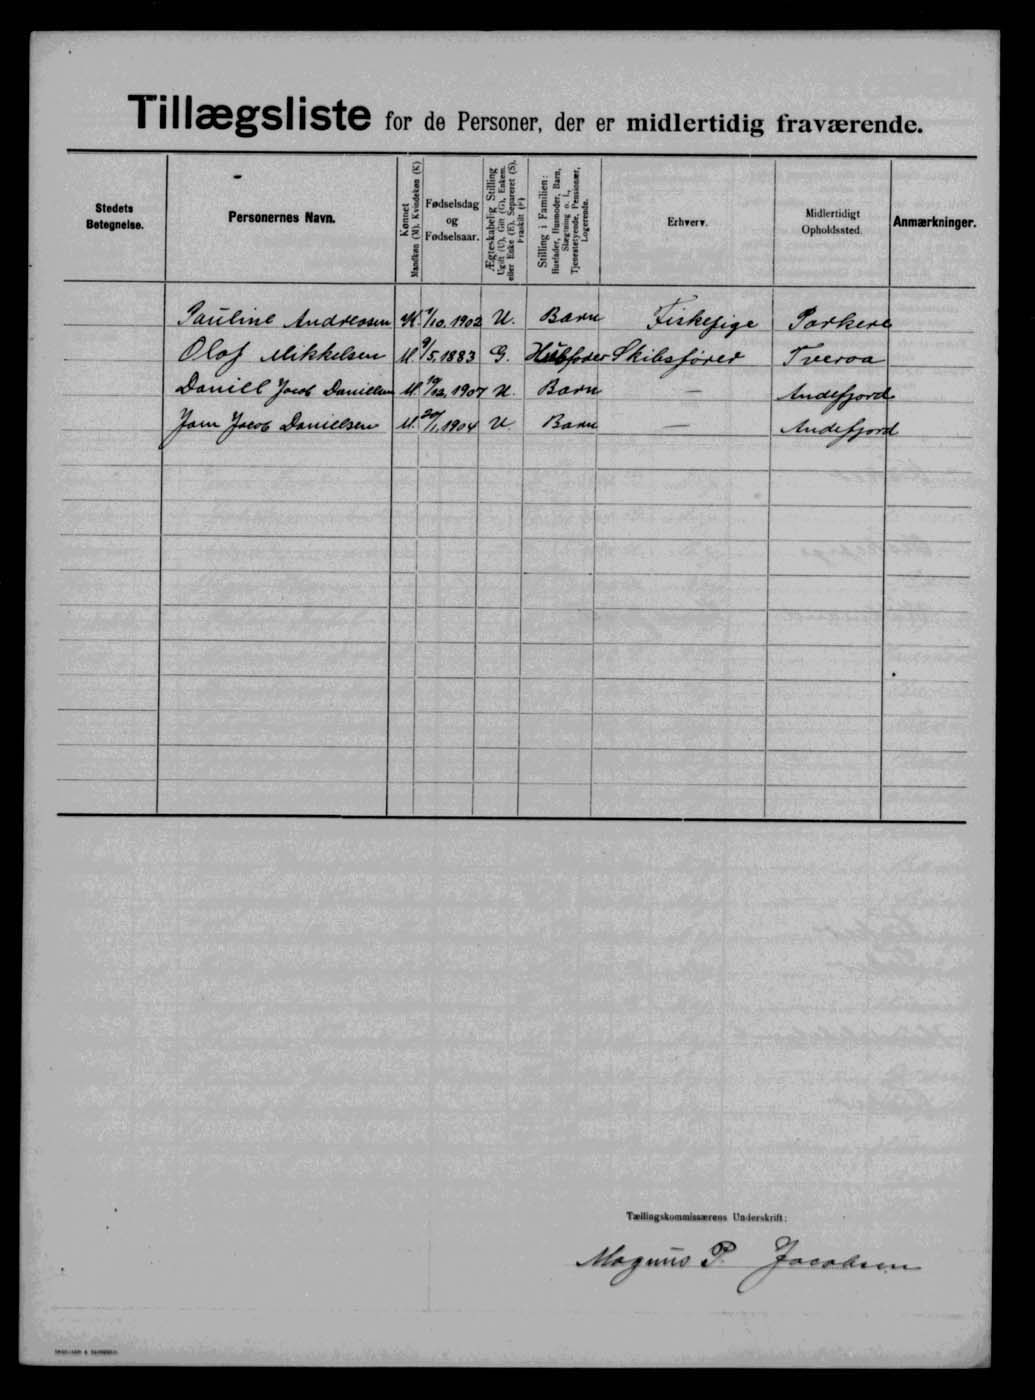 Tillægsliste for de Personer, der er midlertidig fraværende.
Stedets Betegnelse. Personernes Navn. Kønnet Mandkøn (M). Kvindekøn (K) Fødselsdag og Fødselsaar. Ægteskabelig Stilling Ugift (U), Gift (G), Enkem. eller Enke (E), Separeret (S), Fraskilt (F) Stilling i Familien: Husfader, Husmoder, Barn, Slægtning o. l., Tjenestetyende, Pensionær, Logerende. Erhverv. Midlertidigt Opholdssted. Anmærkninger.
Pauline Andreasen 10.1902 U. Barn Fiskepige Porkere
Olof Mikkelsen M. 9/5.1883 G. Husfader Skibsfører Tveroa
Daniel Jacob Danielsen M. 19/12.1907 U. Barn — Andefjord
Jam Jacob Danielsen M. 20/1.1904 U. Barn — Andefjord
Tællingskommissærens Underskrift:
Magnus P. Jacobsen